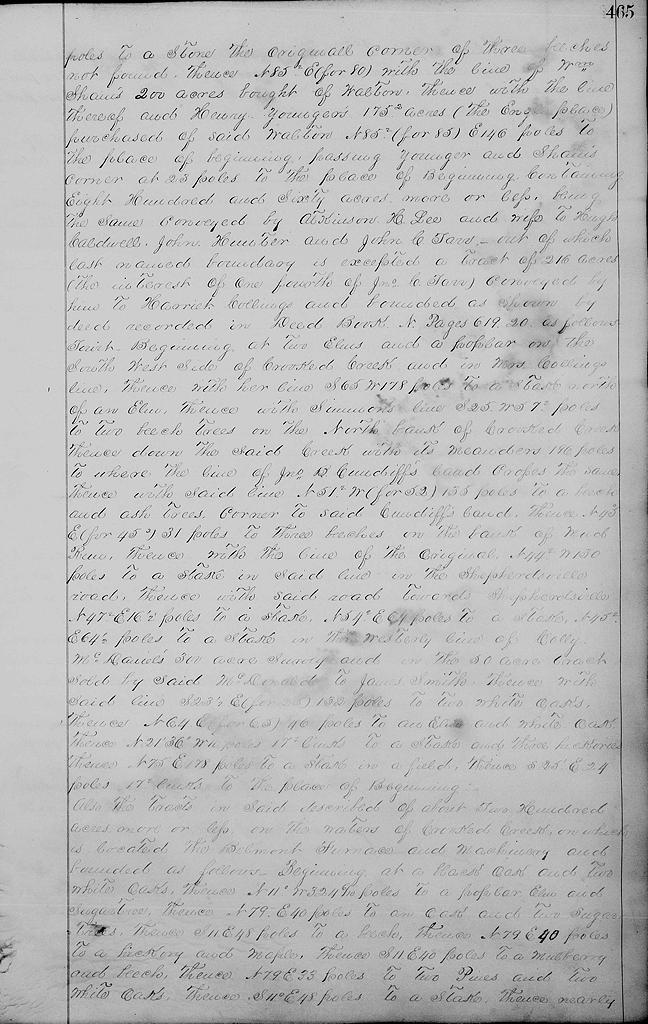 465
poles to a Stone the Originall corner of three beeches
not found. thence N85° E (for 80) with the line of Wm
Shain's 200 acres bought of Walton, thence with the line
thereof and Henry Younger's 175 acres (the place)
purchased of said Walton N85° (for 85) E146 poles to
the place of beginning, passing Younger and Shain's
corner at 23 poles to the place of Beginning. Containing
Eight Hundred and Sixty acres more or less, being
the Same Conveyed by Atkinson H. Lee and wife to Hugh
Caldwell, John Hunter and John C Tarr — out of which
last named boundary is excepted a tract of 216 acres
(the interest of One fourth of Jno. C. Tarr) Conveyed by
him to Harriet Collings and bounded as Shown by
deed recorded in Deed Book N. Pages 619.20. as follows
Towit. Beginning at two Elms and a poplar on the
South West Side of Crooked Creek and in Mrs Collings
line, thence with her line S65 W178 poles to a Stake north
of an Elm, thence with Simmons line S25 W57 poles
to two beech trees on the North bank of Crooked Creek
thence down the Said Creek with its meanders 196 poles
to where the line of Jno. B Cundiff's land Crosses the same
thence with Said line N51° W (for 52) 155 poles to a beech
and ash trees, Corner to said Cundiff's land, thence N43
E (for 45°) 31 poles to three beeches on the bank of Mud
Run, thence with the line of the Original N44° W150
poles to a Stake in Said line in the Shepherdsville
road, thence with said road towards Shepherdsville
N47° E16½ poles to a Stake, N54° E64 poles to a Stake, N45°
E64½ poles to a Stake in the westerly line of Colly
Mc Daniel's 300 acre Survey and in the 50 acre tract
Sold by Said McDonald to James Smith. Thence with
Said line S23½ E (for 25) 132 poles to two white Oaks,
thence N64 E (for 63) 46 poles to an Elm and white Oak
thence N21°36' W poles 17 links to a Stake and three hickories
thence N75 E178 poles to a Stake in a field, thence S25 E 24
poles 17 links to the place of Beginning.
Also the tracts in Said described of about Two Hundred
acres more or less, on the waters of Crooked Creek, on which
is located the Belmont Furnace and Machinery and
bounded as follows. Beginning at a black Oak and two
white Oaks, thence N11° W324½ poles to a poplar Elm and
Sugartree, thence N79° E40 poles to an Oak and two Sugar
Trees, thence S11 E48 poles to a beech, thence N79 E40 poles
to a hickory and Maple, thence S11 E40 poles to a Mulberry
and beech, thence N79 E23 poles to two Pines and two
White Oaks, thence S11° E48 poles to a Stake, thence nearly